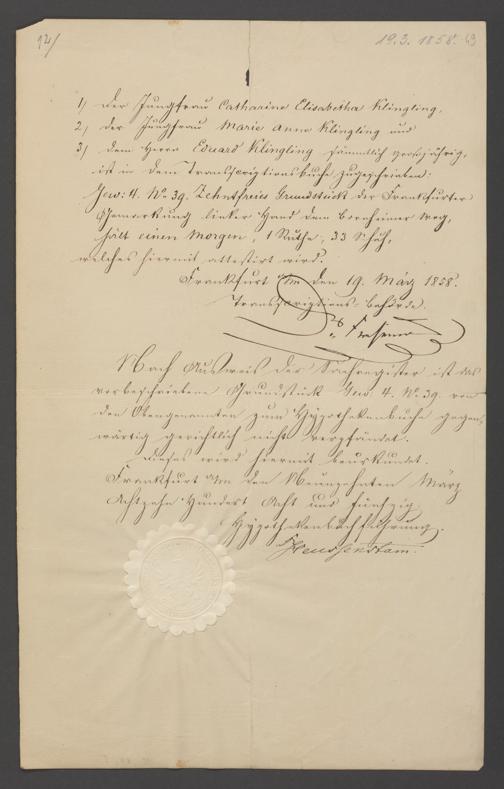 92/
19. 3. 1858.
1) Der Jungfrau Catharine Elisabetha Klingling,
2) der Jungfrau Marie Anne Klingling und
3) dem Herrn Eduard Klingling sämmtlich großjährig,
ist in dem Transscriptionsbuche zugeschrieben:
Gew: 4. No 39. Zehntfreies Grundstück der Frankfurter
Gemarkung linker Hand dem Bornheimer Weg,
hält einen Morgen, 1 Ruthe, 33 Schuh,
welches hiermit attestirt wird.
Frankfurt a/m den 19. März 1858.
Transscriptions-Behörde.
Nach Ausweis der Sachregister ist das
vorbeschriebene Grundstück Gew. 4. No 39. von
den Obengenannten zum Hypothekenbuche gegen-
wärtig gerichtlich nicht verpfändet.
Dieses wird hiermit beurkundet.
Frankfurt a/m den Neunzehnten März
Achtzehn Hundert Acht und fünfzig
Hypothekenbuchführung.
Heussenstam.